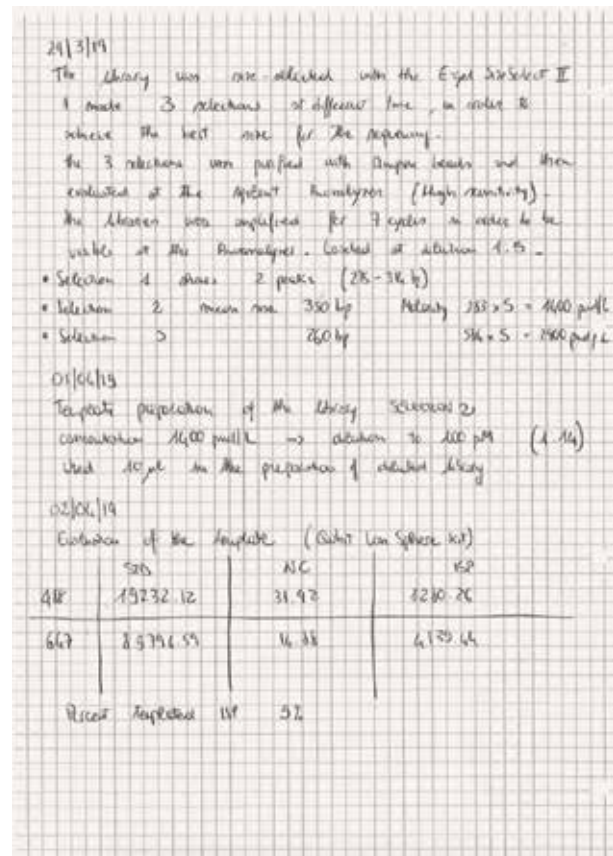 29/3/19
The library was size-selected with the E-gel SizeSelect II
I made 3 selections at different time, in order to
achieve the best size for the sequencing.
the 3 selections were purified with Ampure beads and then
evaluated at the Agilent Bioanalyzer (High sensitivity).
the libraries was amplified for 7 cycles in order to be
visible at the Bioanalyzer. Loaded at dilution 1:5.
• Selection 1 shows 2 peaks
• Selection 2 mean size 350 bp Molarity x 5 = 1400 pmol/L
• Selection 3 260 bp x 5 = pmol/L
Template preparation of the library Selection 2
concentration 1400 pmol/L → dilution to 100 pM (1:14)
Used 10 µl in the preparation of diluted library
Evaluation of the template (Qubit Ion Sphere kit)
STD NC ISP
488 19232.12 31.92
667 89796.59
Percent Templated ISP